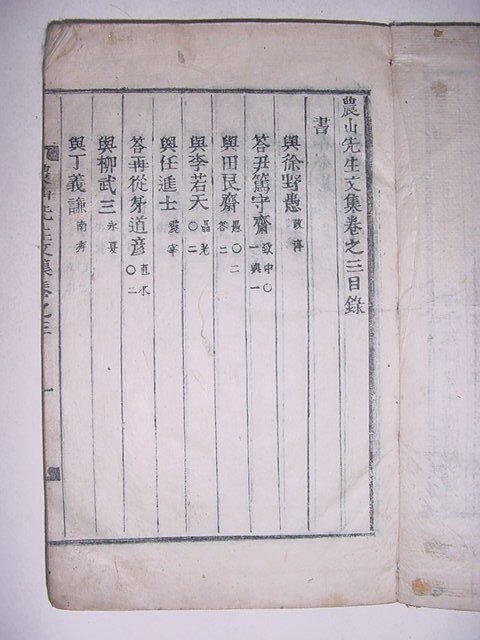 農山先生文集卷之三目錄
書
與徐野愚 政淳
答尹篤守齋 致中○一與一
與田艮齋 愚○二答二
與李若天 ○二
與任進士 震宰
答再從弟道彦 直永○二
與柳武三 永夏
與丁義謙 南秀
農山先生文集卷之三 一